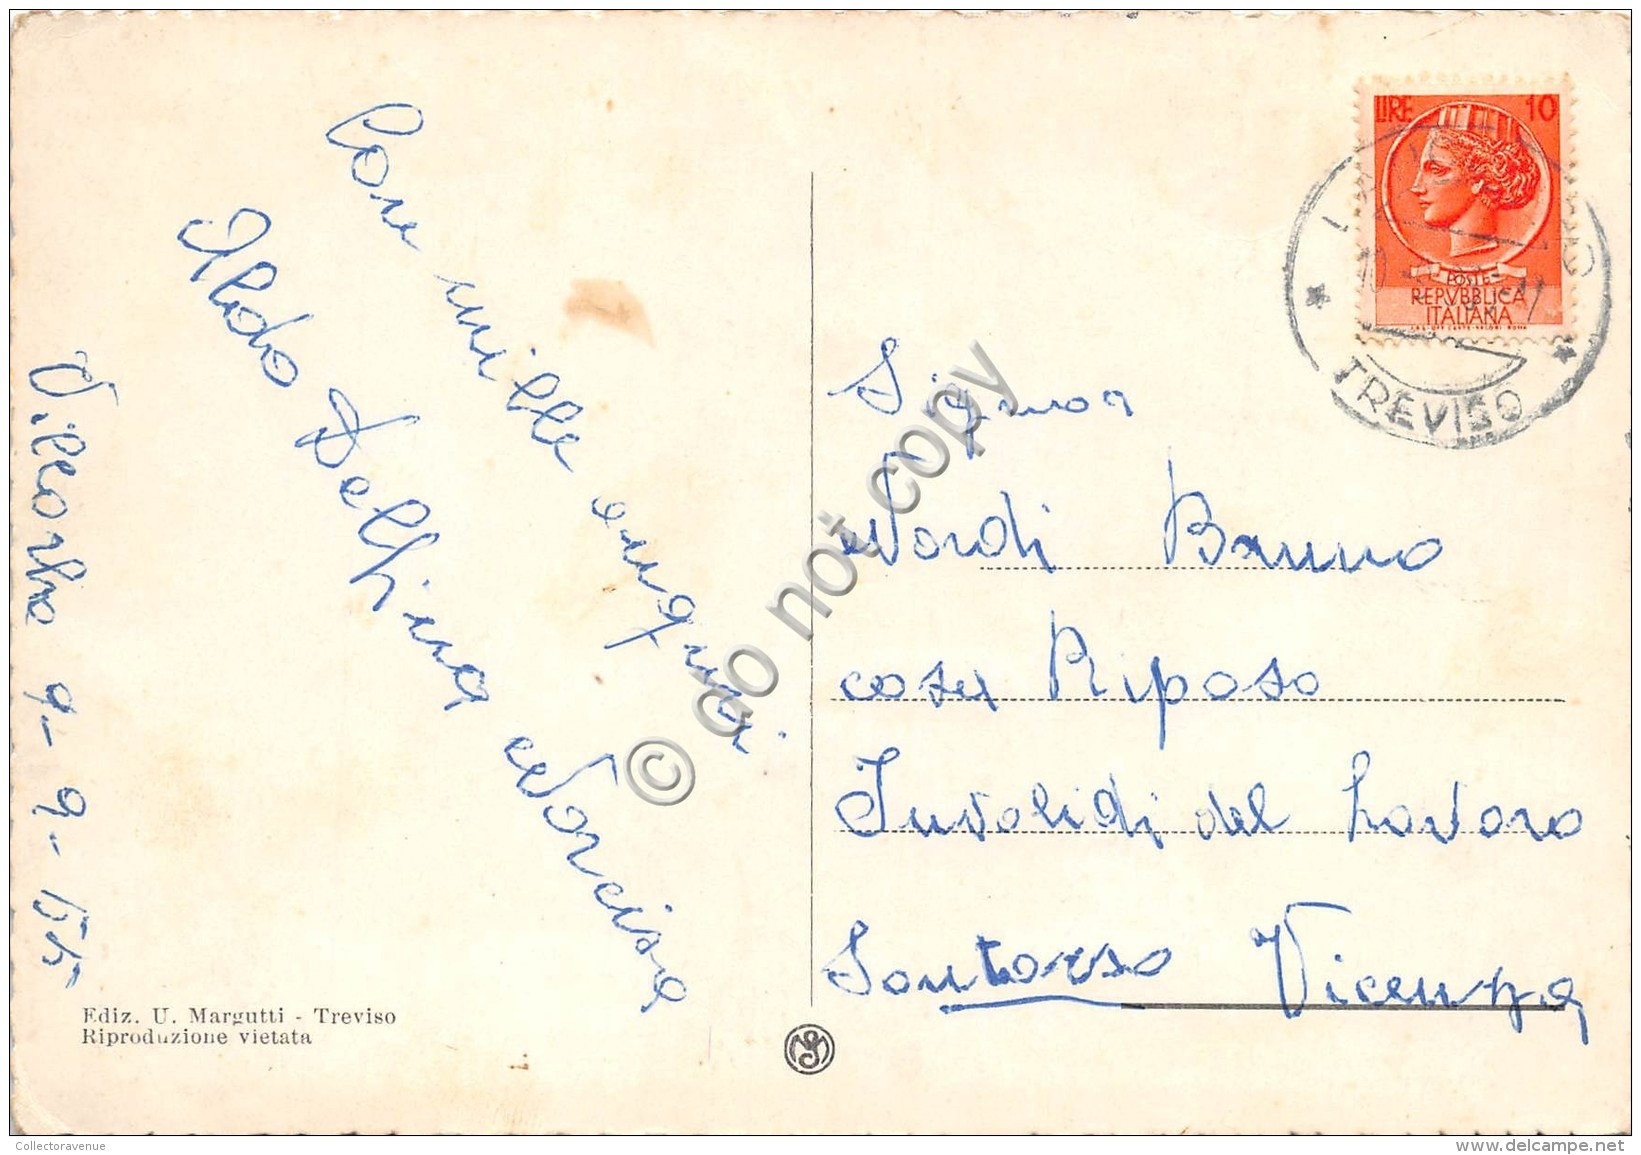 Con mille auguri
Aldo Delfina Narcisa
Villorba 9-9-55
Ediz. U. Margutti - Treviso
Riproduzione vietata
LIRE 10
POSTE
REPVBBLICA
ITALIANA
TREVISO
Signor
Nardi Bruno
casa Riposo
Invalidi del Lavoro
Santorso Vicenza
© do not copy
Collectoravenue
www.delcampe.net